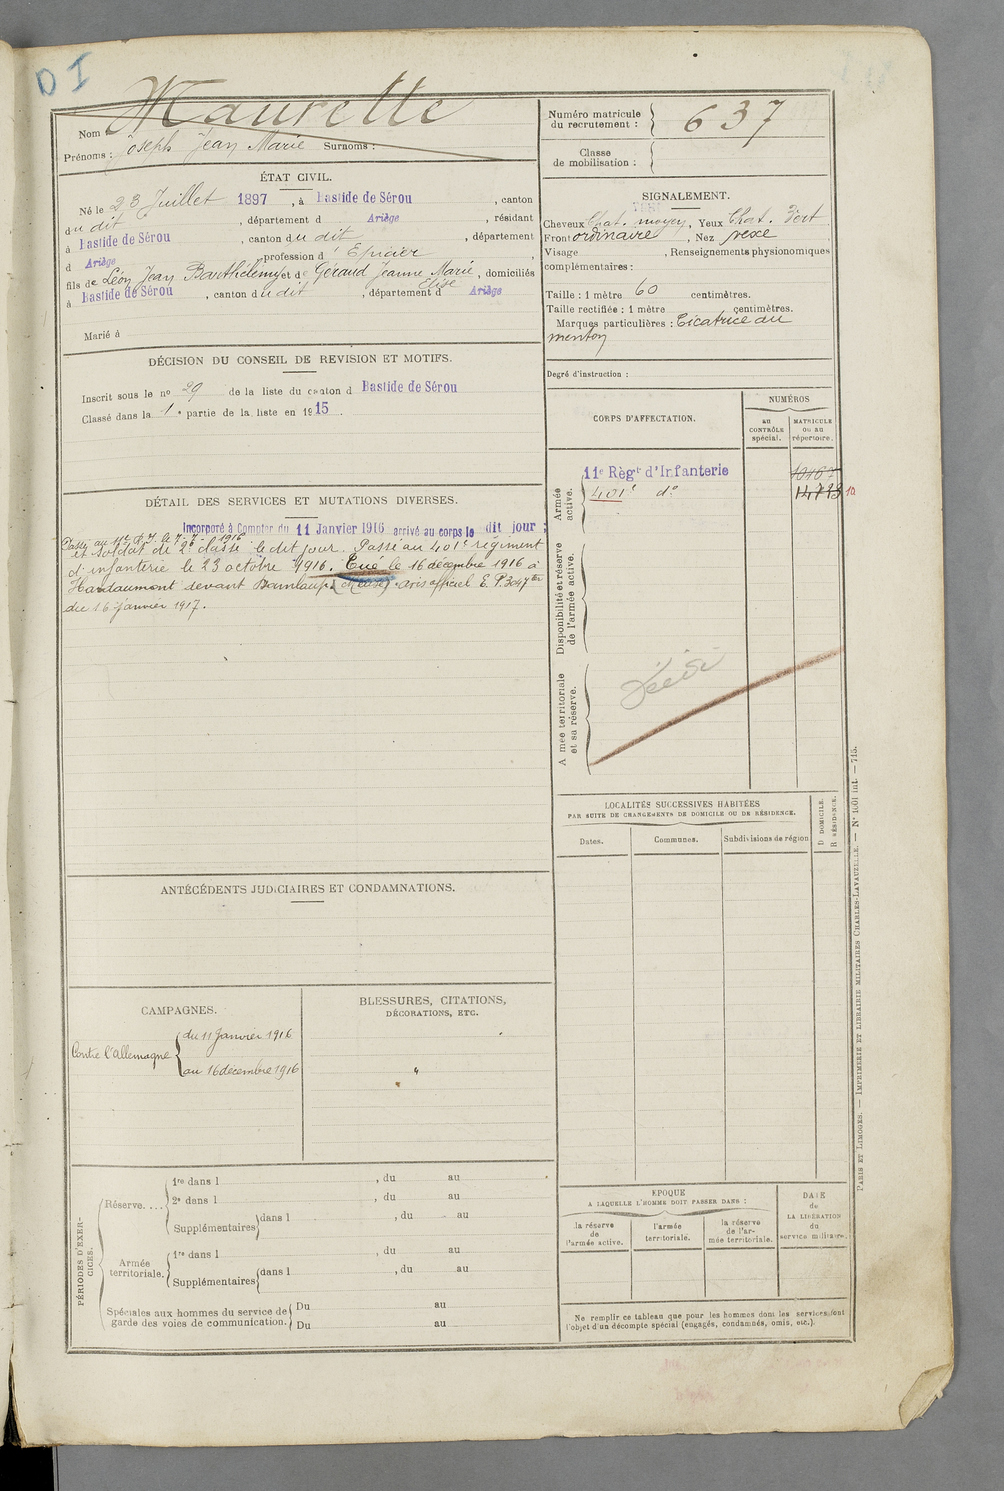 D I
Nom Maurette
Prénoms : Joseph Jean Marie Surnoms :
Numéro matricule
du recrutement : 637
Classe
de mobilisation :
ÉTAT CIVIL.
Né le 23 Juillet 1897, à Bastide de Sérou, canton
du dit, département d Ariège, résidant
à Bastide de Sérou, canton du dit, département
d Ariège, profession d'Epicier
fils de Léon Jean Barthélemy et de Géraud Jeanne Marie Elise, domiciliés
à Bastide de Sérou, canton du dit, département d Ariège
Marié à
SIGNALEMENT.
Cheveux Chat. moyen, Yeux Chat. Vert
Front ordinaire, Nez vexe
Visage , Renseignements physionomiques
complémentaires :
Taille : 1 mètre 60 centimètres.
Taille rectifiée : 1 mètre centimètres.
Marques particulières : Cicatrice au
menton
Degré d'instruction :
DÉCISION DU CONSEIL DE REVISION ET MOTIFS.
Inscrit sous le no 29 de la liste du canton d Bastide de Sérou
Classé dans la 1e partie de la liste en 1915.
CORPS D'AFFECTATION.
NUMÉROS
au
CONTRÔLE
spécial.
MATRICULE
ou au
répertoire.
Armée
active.
11e Règt d'Infanterie
401e do
14773
Disponibilité et réserve
de l'armée active.
Armée territoriale
et sa réserve.
DÉTAIL DES SERVICES ET MUTATIONS DIVERSES.
Incorporé à Compter du 11 Janvier 1916 arrivé au corps le dit jour ;
et soldat de 2e classe le dit jour. Passé au 401e régiment
d'infanterie le 23 octobre 1916. Tué le 16 décembre 1916 à
Hardaumont devant Damloup (Meuse) avis officiel E. P. 3047 ter
du 16 janvier 1917.
LOCALITÉS SUCCESSIVES HABITÉES
PAR SUITE DE CHANGEMENTS DE DOMICILE OU DE RÉSIDENCE.
Dates.
Communes.
Subdivisions de région
D DOMICILE.
R RÉSIDENCE.
ANTÉCÉDENTS JUDICIAIRES ET CONDAMNATIONS.
CAMPAGNES.
Contre l'Allemagne
du 11 Janvier 1916
au 16 décembre 1916
BLESSURES, CITATIONS,
DÉCORATIONS, ETC.
PÉRIODES D'EXER-
CICES.
Réserve....
1re dans l , du au
2e dans l , du au
Supplémentaires dans l , du au
Armée
territoriale.
1re dans l , du au
Supplémentaires dans l , du au
Spéciales aux hommes du service de
garde des voies de communication.
Du au
Du au
EPOQUE
A LAQUELLE L'HOMME DOIT PASSER DANS :
la réserve
de
l'armée active.
l'armée
territoriale.
la réserve
de l'ar-
mée territoriale.
DATE
de
LA LIBÉRATION
du
service militaire.
Ne remplir ce tableau que pour les hommes dont les services font
l'objet d'un décompte spécial (engagés, condamnés, omis, etc.).
PARIS ET LIMOGES. — IMPRIMERIE ET LIBRAIRIE MILITAIRES CHARLES-LAVAUZELLE. —